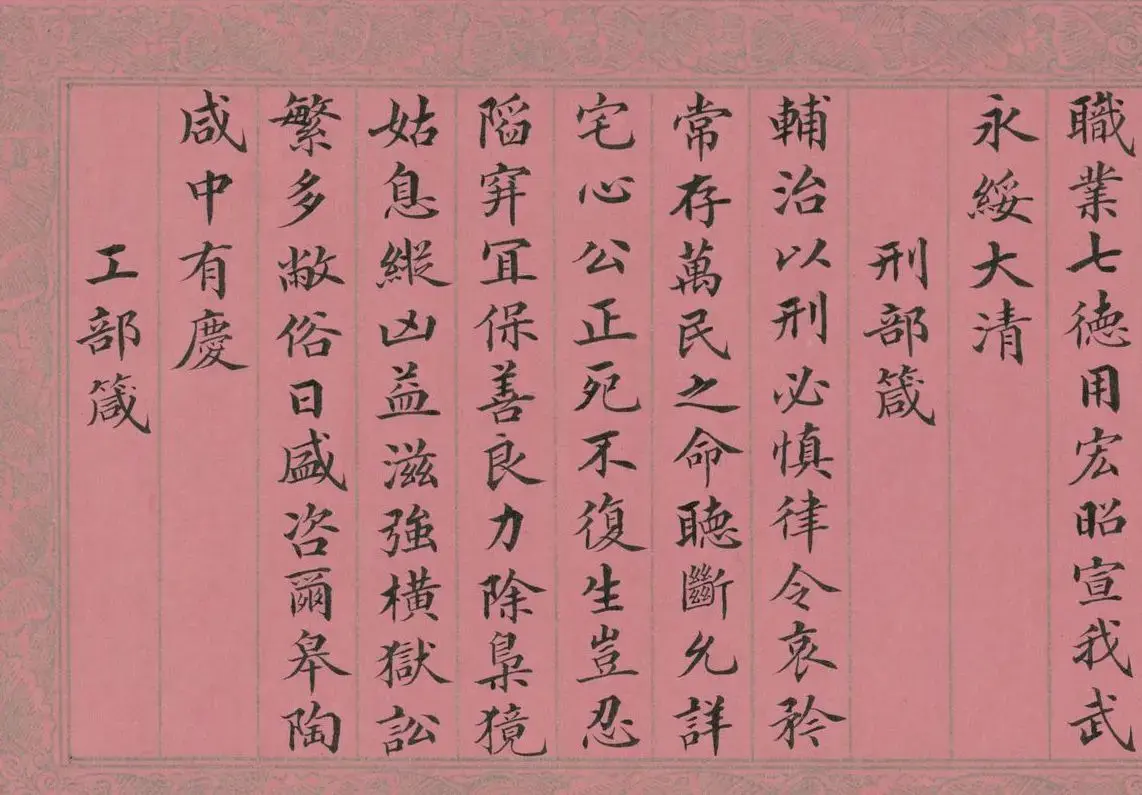 職業七德用宏昭宣我武
永綏大清
刑部箴
輔治以刑必慎律令哀矜
常存萬民之命聽斷允詳
宅心公正死不復生豈忍
陷穽冝保善良力除梟獍
姑息縱凶益滋強橫獄訟
繁多敝俗日盛咨爾皋陶
咸中有慶
工部箴